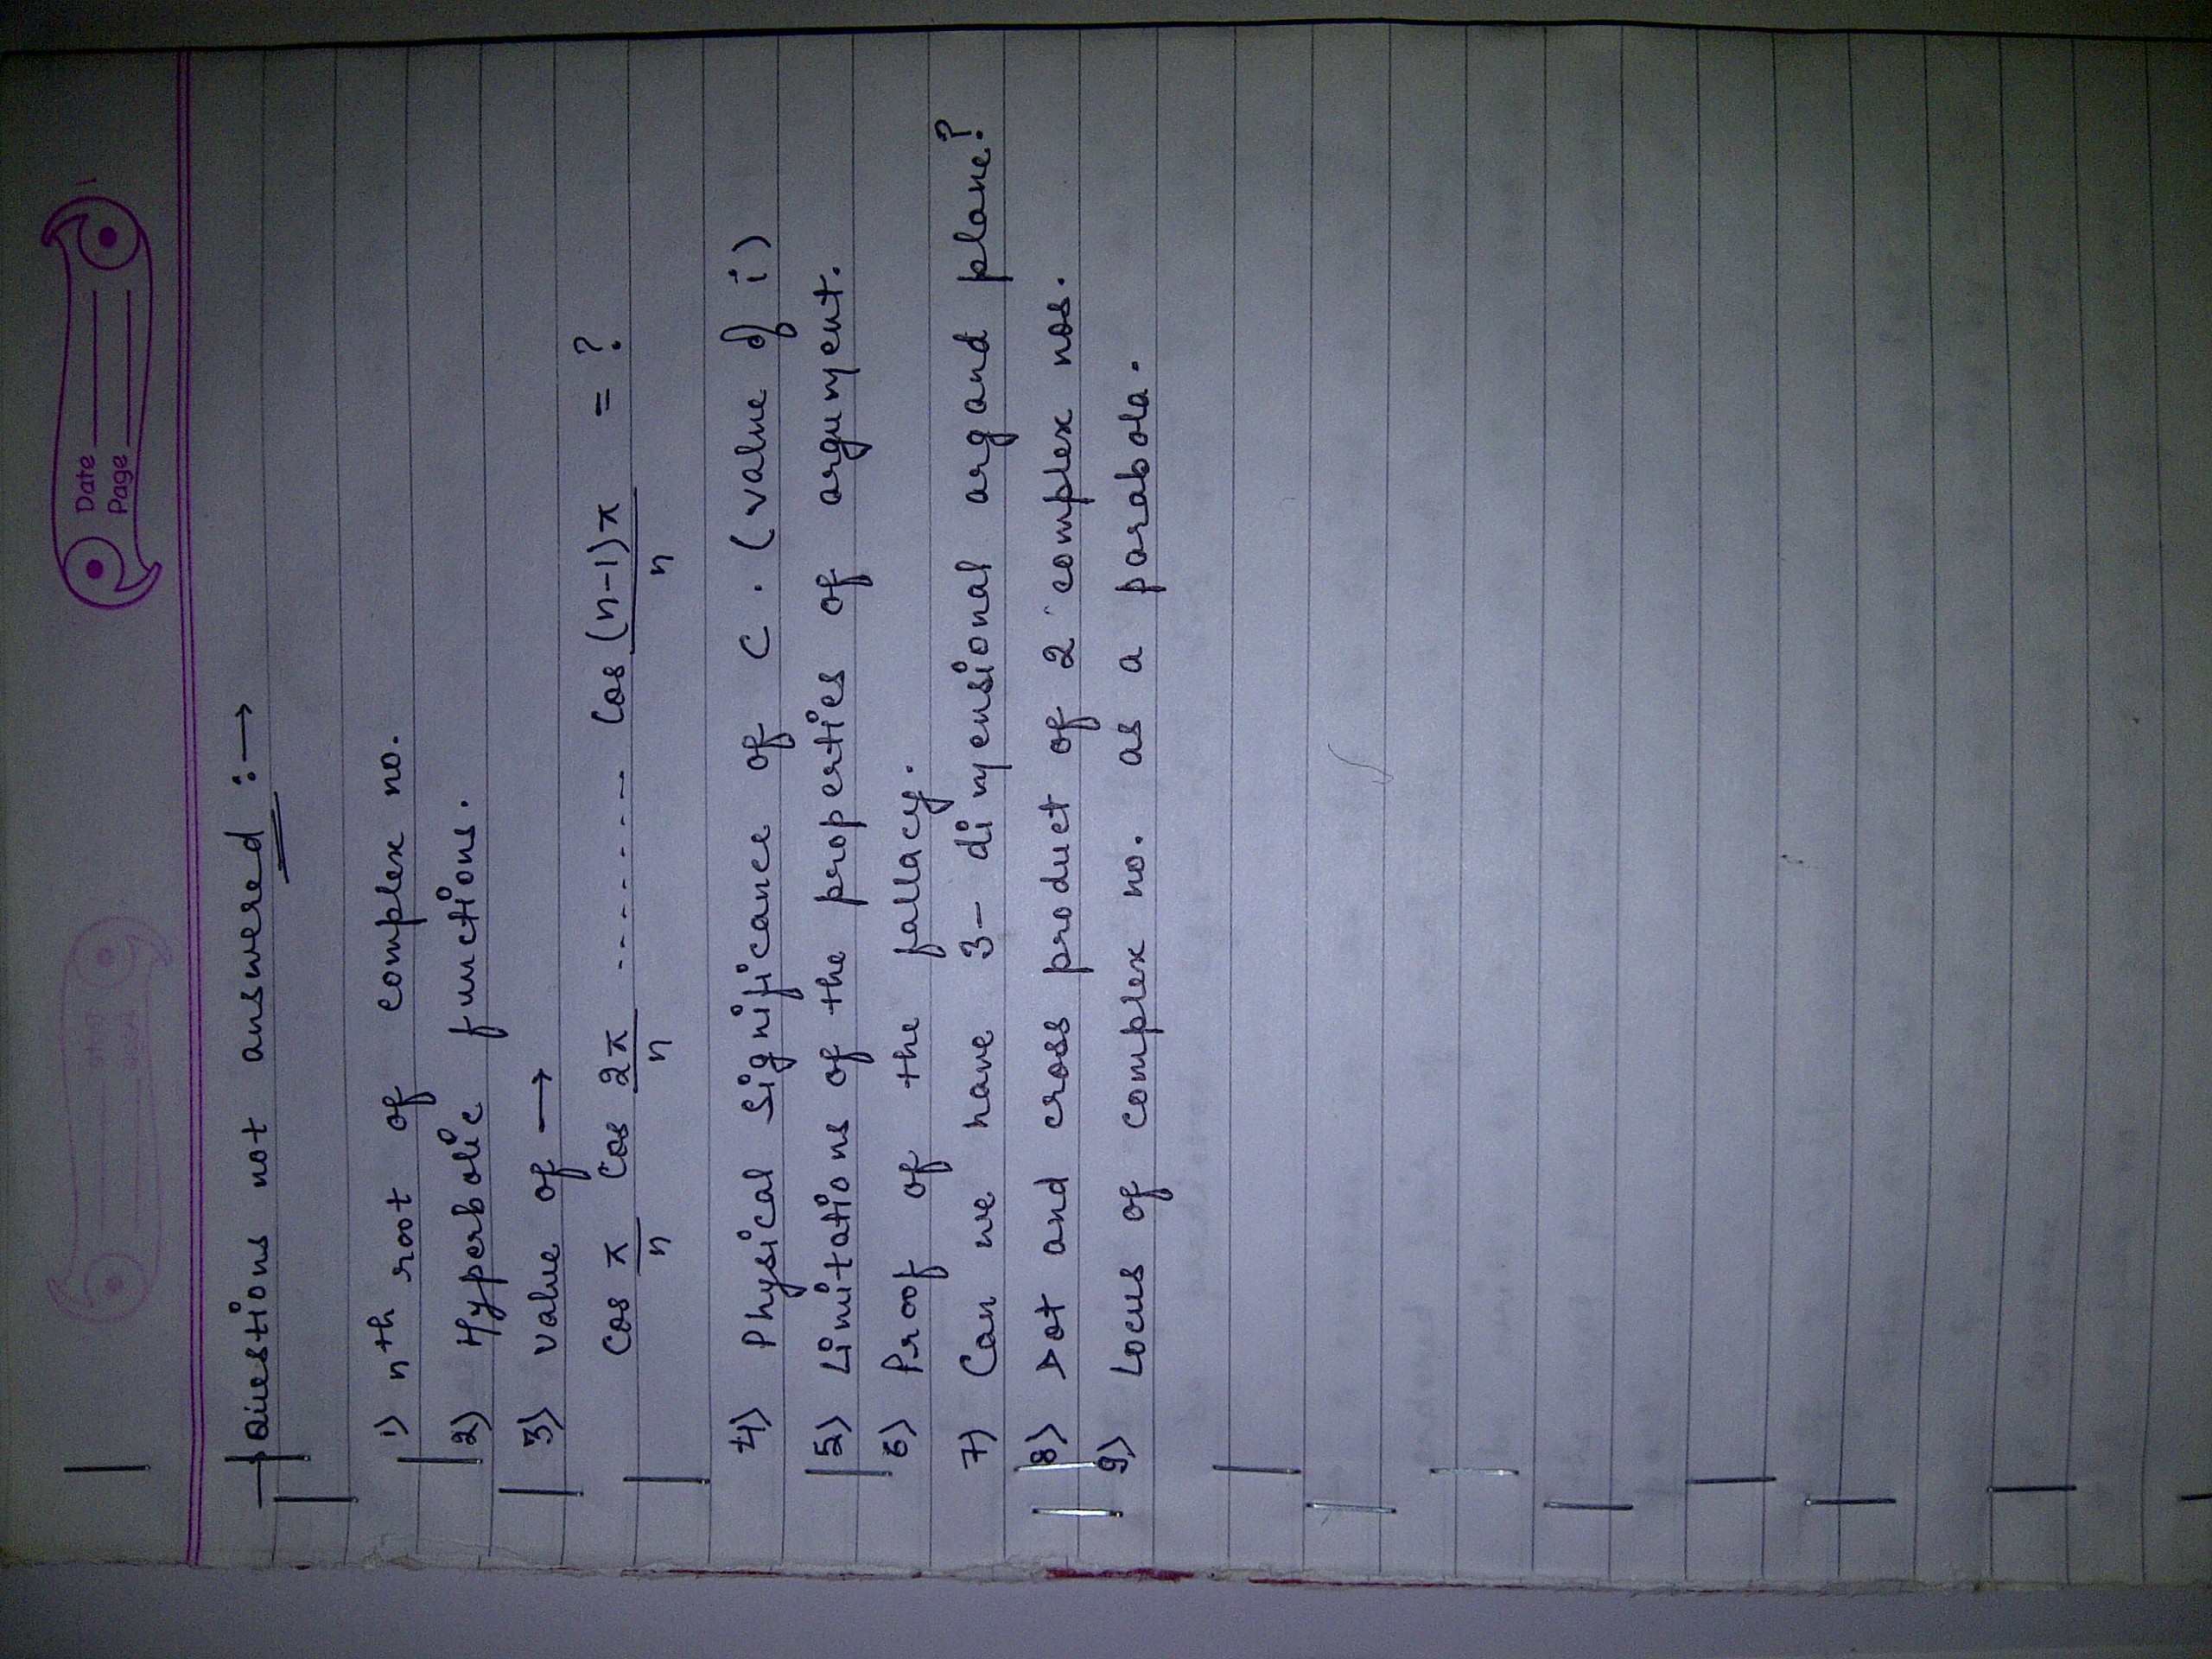 Date
Page
Questions not answered :→
1) nth root of complex no.
2) Hyperbolic functions.
3) Value of →
Cos π/n Cos 2π/n ........ Cos (n-1)π/n = ?
4) Physical Significance of C . (Value of i)
5) Limitations of the properties of argument.
6) Proof of the fallacy.
7) Can we have 3- dimensional argand plane?
8) Dot and cross product of 2 complex nos.
9) Locus of complex no. as a parabola.